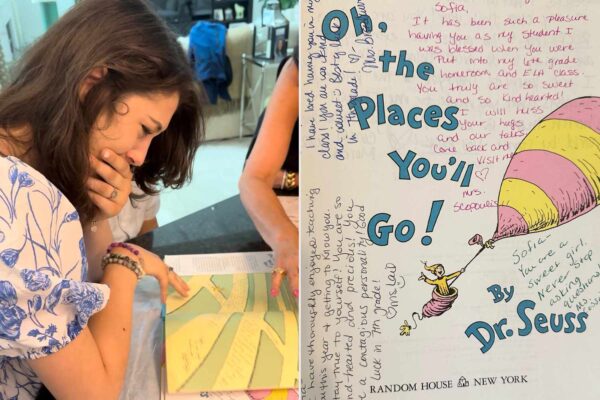 I have loved having you in my
class! You are so kind
and sweet Best of luck
in 7th grade!
Oh,
the
Places
You'll
Go!
Sofia,
It has been such a pleasure
having you as my student. I
was blessed when you were
put into my 6th grade
homeroom and ELA class.
You truly are so sweet
and so kindhearted!
I will miss
your hugs
and our talks
Come back and
visit
mrs.
I have thoroughly enjoyed teaching
this year & getting to know you.
stay true to yourself! You are so
kind hearted and precious! You
a contagious personality! Good
luck in 7th grade!
Sofia
You are a
sweet girl.
Never stop
asking
questions
By
Dr. Seuss
RANDOM HOUSE NEW YORK